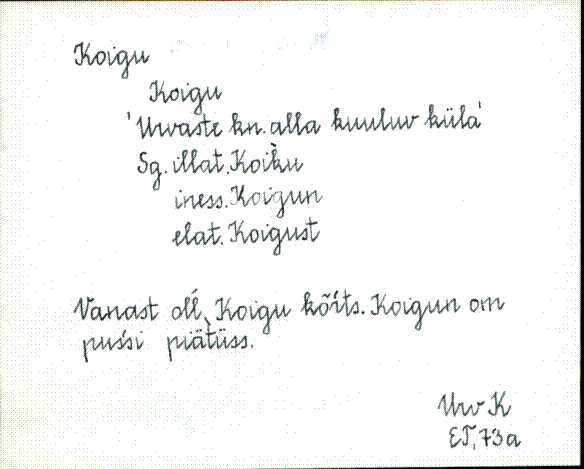 Koigu
Koigu
'Urvaste kn. alla kuuluv küla'
Sg. illat. Koik̀u
iness. Koigun
elat. Koigust
Vanast oĺĺ Koigu kõŕts. Koigun om
puśsi piätüss.
Urv K
ET, 73 a